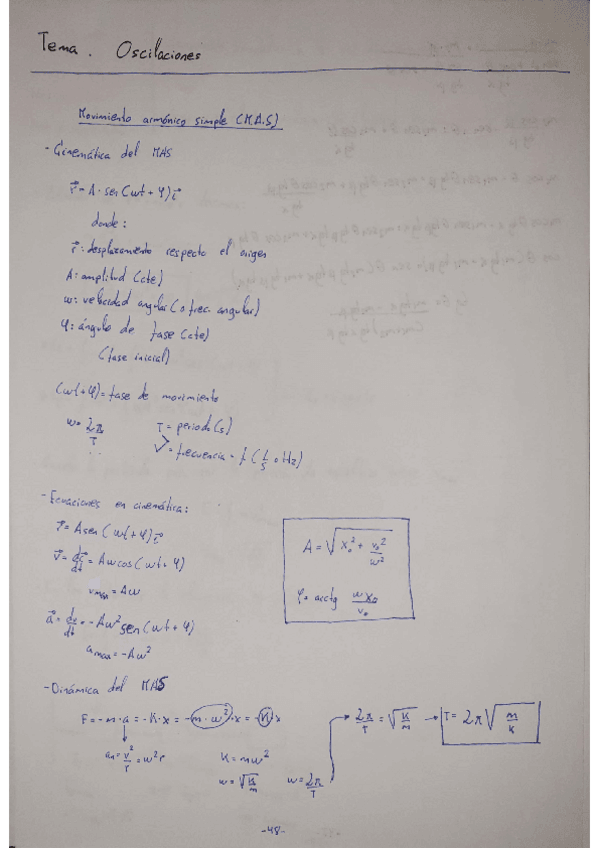 Tema. Oscilaciones
Movimiento armónico simple (M.A.S)
- Cinemática del MAS
r⃗ = A · sen(wt + φ) i⃗
donde:
r⃗: desplazamiento respecto el origen
A: amplitud (cte)
w: velocidad angular (o frec. angular)
φ: ángulo de fase (cte)
(fase inicial)
(wt + φ) = fase de movimiento
w = 2π/T    T = periodo (s)
ν = frecuencia = f (1/s o Hz)
- Ecuaciones en cinemática:
r⃗ = A sen(wt + φ) i⃗
v⃗ = dr⃗/dt = Aw cos(wt + φ)
vmax = Aw
a⃗ = dv/dt = -Aw² sen(wt + φ)
amax = -Aw²
A = √(x₀² + v₀²/w²)
φ = arctg wx₀/v₀
- Dinámica del MAS
F = -m·a = -K·x = -m·w²·x = -K x
an = v²/r = w²r
K = mw²
w = √(K/m)    w = 2π/T
→ 2π/T = √(K/m) → T = 2π √(m/K)
-48-